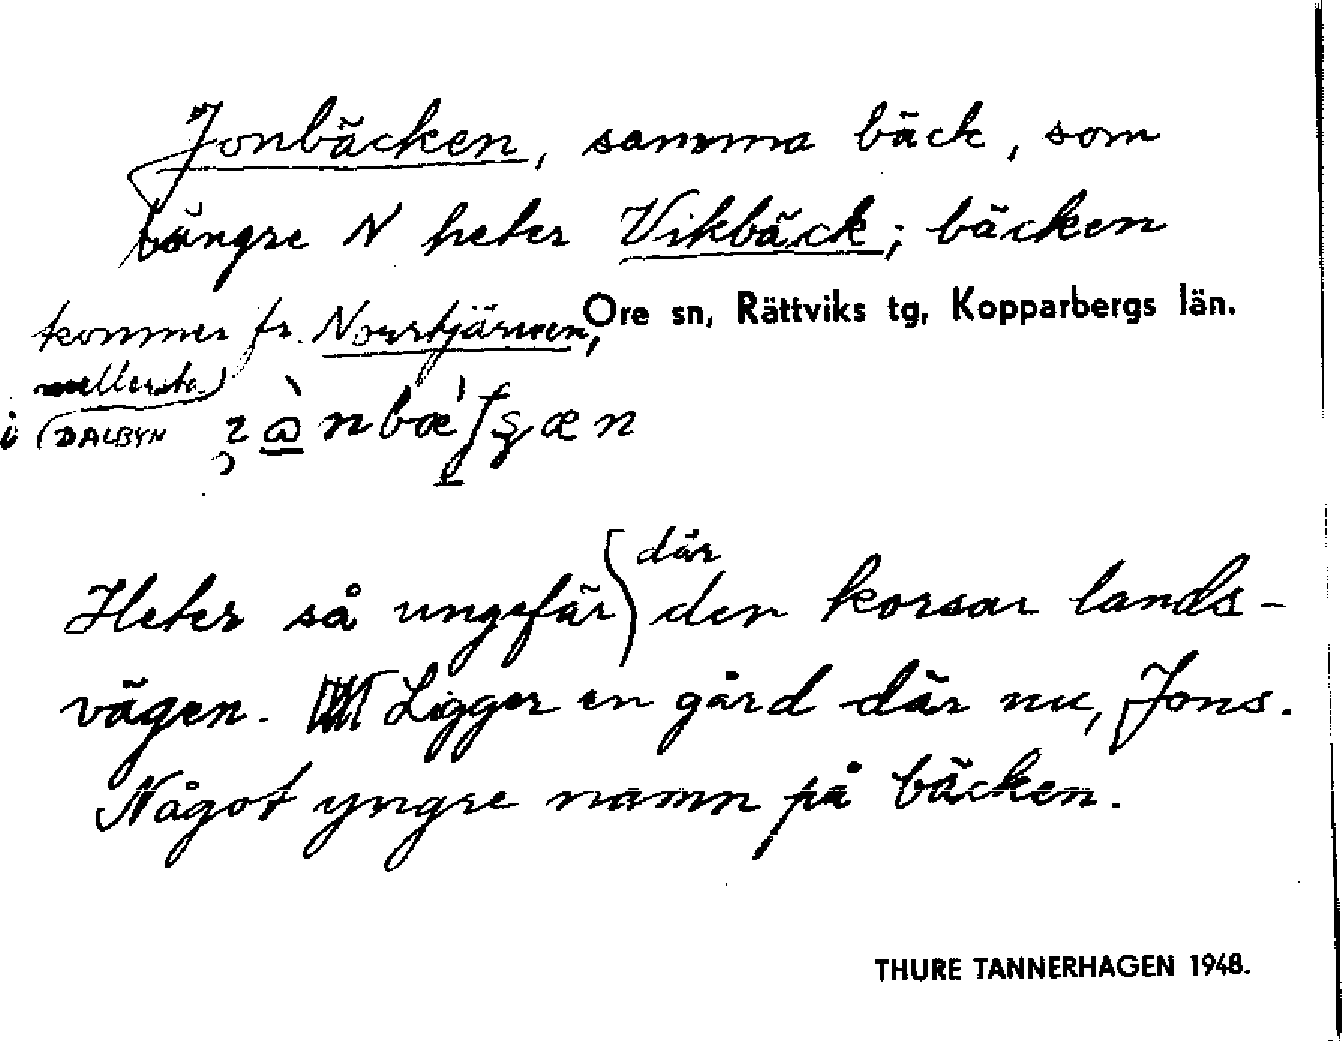 Jonbäcken, samma bäck, som
längre N heter Vikbäck; bäcken
kommer fr. Norrtjärnen,
Ore sn, Rättviks tg, Kopparbergs län.
mellersta
i DALBYN
Heter så ungefär där den korsar lands-
vägen. Ligger en gård där nu, Jons.
Något yngre namn på bäcken.
THURE TANNERHAGEN 1948.